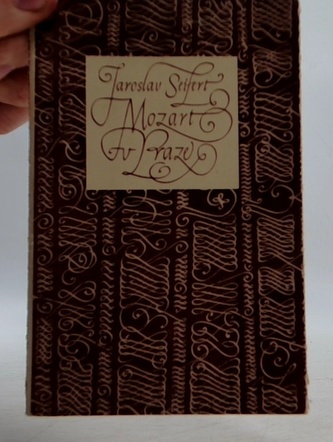 Jaroslav Seifert
Mozart
v Praze